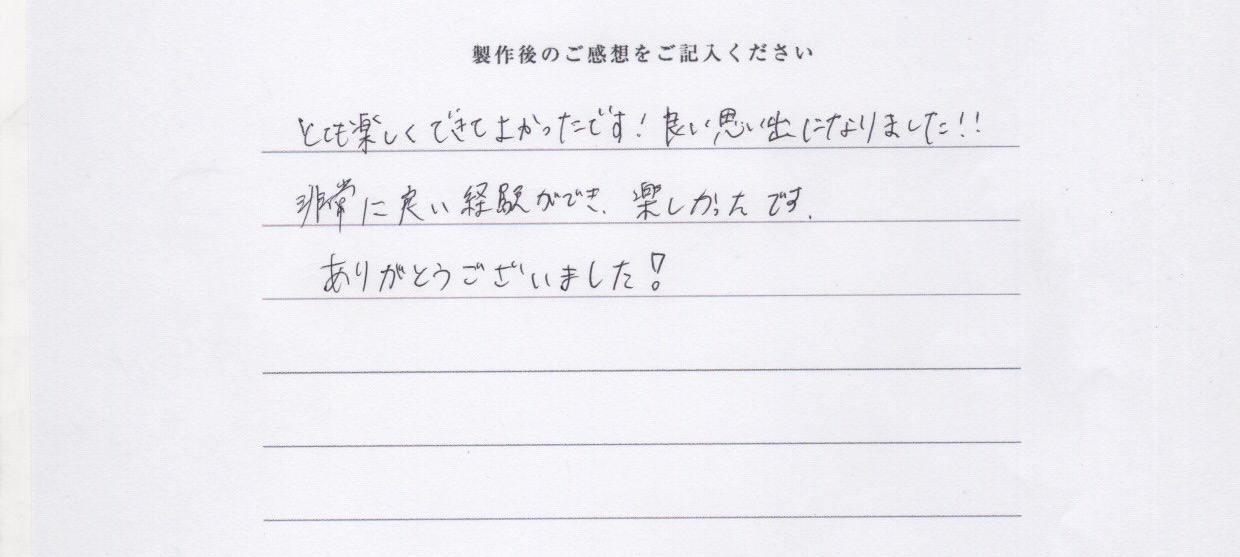 製作後のご感想をご記入ください
とても楽しくできてよかったです！良い思い出になりました!!
非常に良い経験ができ、楽しかったです。
ありがとうございました！